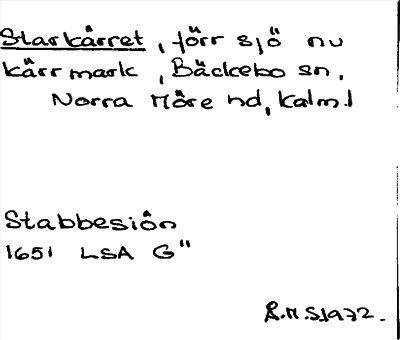 Starkärret, förr sjö nu
kärrmark, Bäckebo sn,
Norra Möre hd, Kalm.l
Stabbesiön
1651 LSA G"
R.M.S.1972.